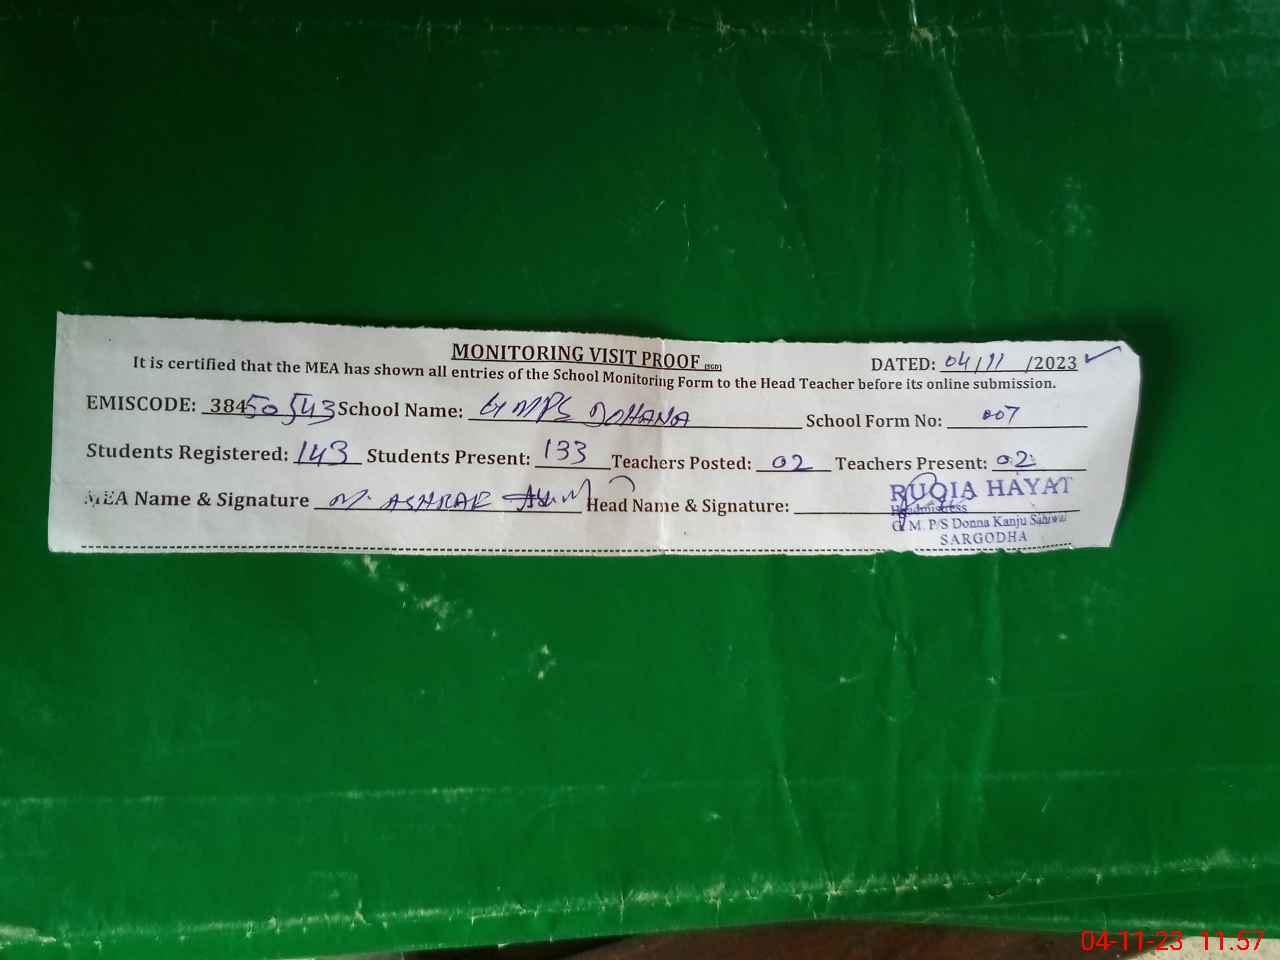 MONITORING VISIT PROOF (SGD)
DATED: 04/11/2023
It is certified that the MEA has shown all entries of the School Monitoring Form to the Head Teacher before its online submission.
EMISCODE: 38450543 School Name: GMPS DOHANA School Form No: 007
Students Registered: 143 Students Present: 133 Teachers Posted: 02 Teachers Present: 02
MEA Name & Signature M. ASHRAF Head Name & Signature:
RUQIA HAYAT
Headmistress
G M. P/S Donna Kanju Sahiwal
SARGODHA
04-11-23 11:57